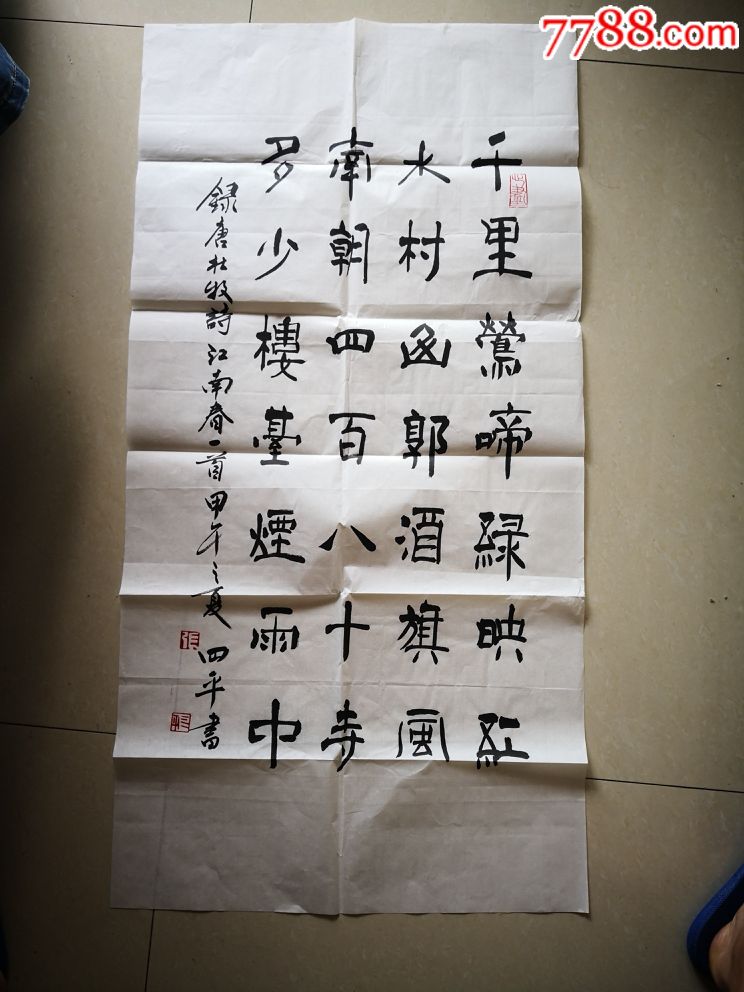 7788.com
千里鶯啼緑映紅
水村山郭酒旗風
南朝四百八十寺
多少樓臺煙雨中
録唐杜牧詩江南春一首甲午之夏
四平書